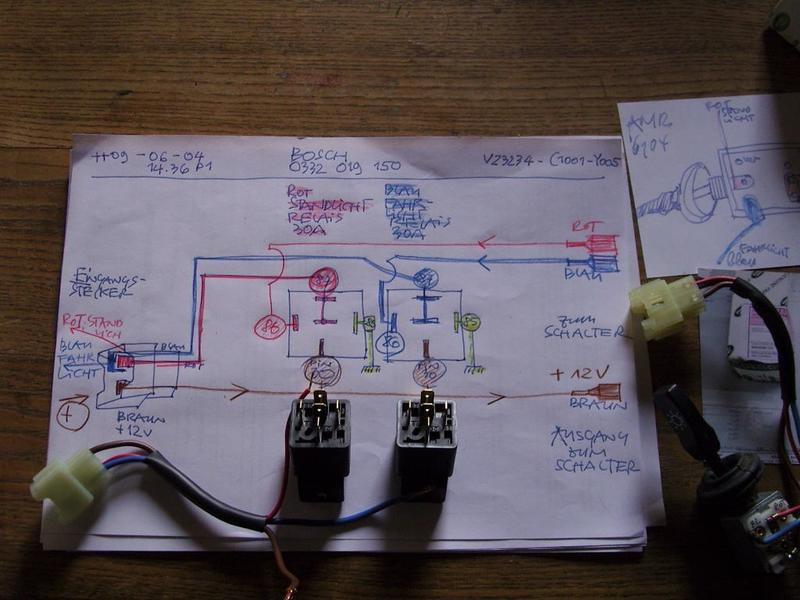 HO9-06-04
14.36 P1
BOSCH
0332 019 150
V23234-C1001-Y005
ROT
STANDLICHT
RELAIS
30A
BLAU
FAHR-
LICHT
RELAIS
30A
ROT
BLAU
EINGANGS-
STECKER
ROT-STAND
LICH
BLAU
FAHR
LICHT
BLAU
ROT
87
87
86
PIN
30
PIN
30
ZUM
SCHALTER
+ 12V
BRAUN
+
BRAUN
+12V
AUSGANG
ZUM
SCHALTER
AMR
6104
ROT
STAND
LICHT
FAHRLICHT
Blau